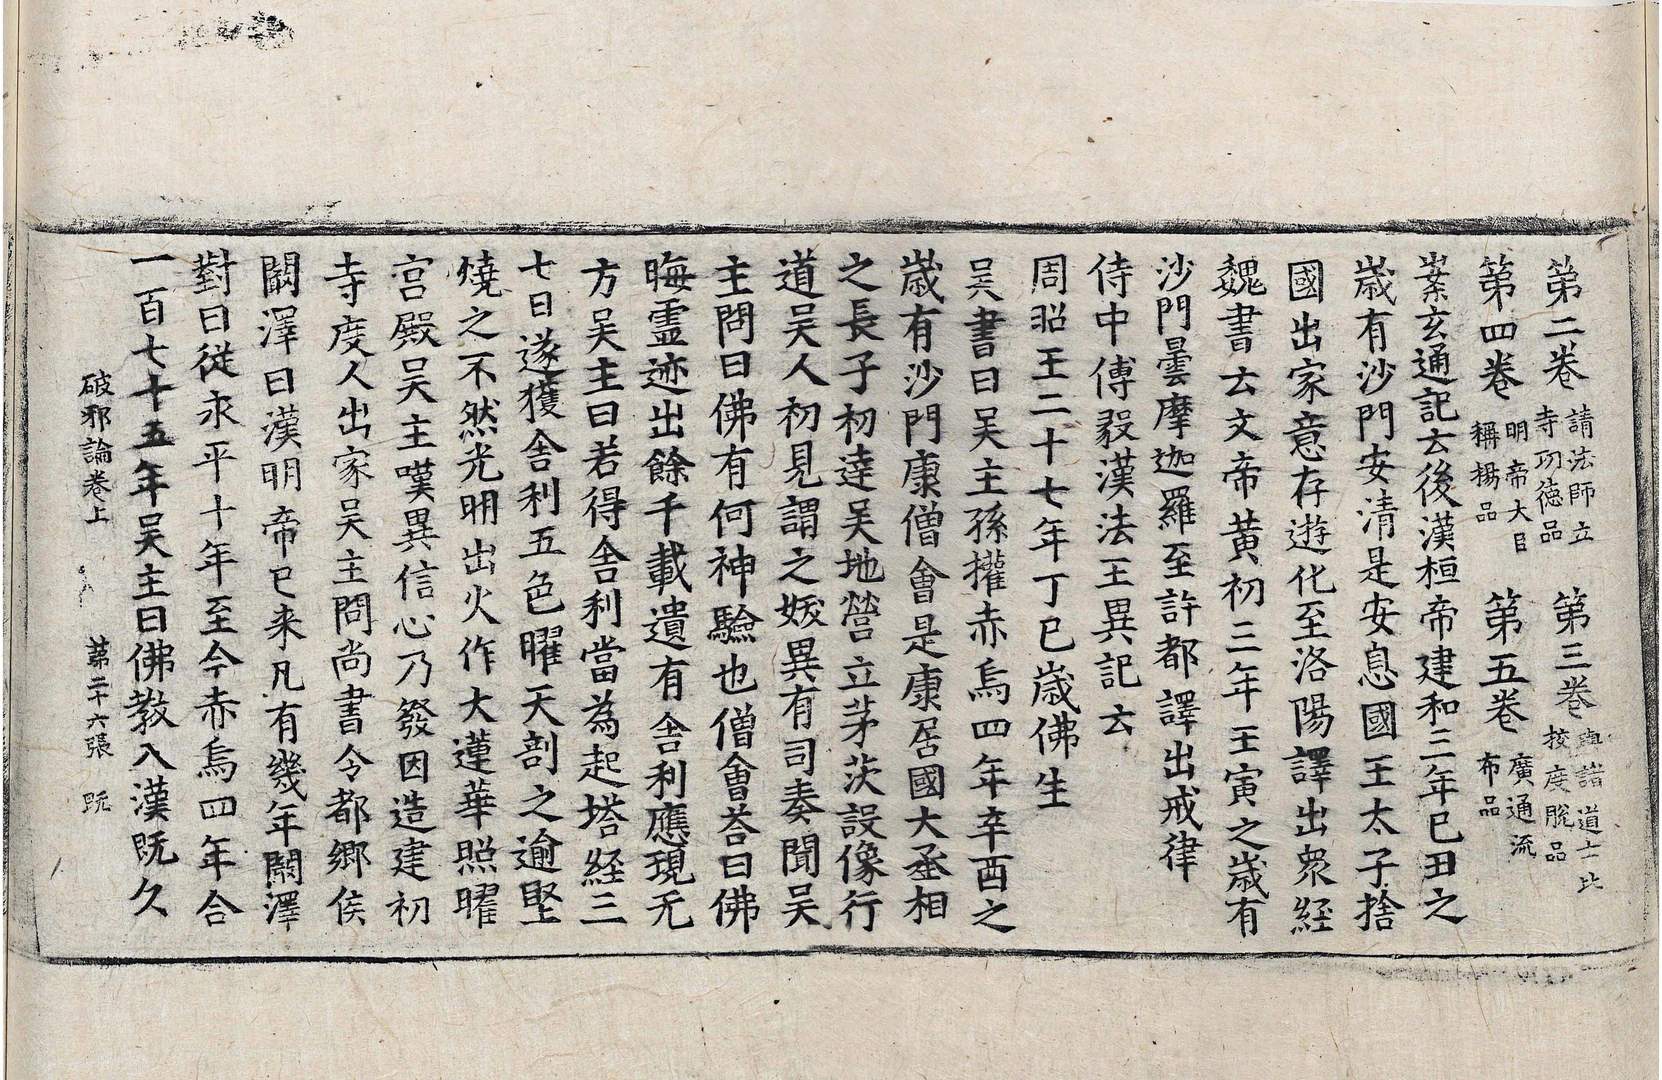 第二卷 請法師立寺功德品 第三卷 與諸道士比挍度脫品
第四卷 明帝大臣稱揚品 第五卷 廣通流布品
案玄通記云後漢桓帝建和三年己丑之
歲有沙門安清是安息國王太子捨
國出家意存遊化至洛陽譯出眾經
魏書云文帝黃初三年壬寅之歲有
沙門曇摩迦羅至許都譯出戒律
侍中傅毅漢法王異記云
周昭王二十七年丁巳歲佛生
吳書曰吳主孫權赤烏四年辛酉之
歲有沙門康僧會是康居國大丞相
之長子初達吳地營立茅茨設像行
道吳人初見謂之妖異有司奏聞吳
主問曰佛有何神驗也僧會荅曰佛
晦靈迹出餘千載遺有舍利應現无
方吳主曰若得舍利當為起塔経三
七日遂獲舍利五色曜天剖之逾堅
燒之不然光明出火作大蓮華照曜
宮殿吳主嘆異信心乃發因造建初
寺度人出家吳主問尚書令都鄉侯
闞澤曰漢明帝已来凡有幾年闞澤
對曰從永平十年至今赤烏四年合
一百七十五年吳主曰佛教入漢既久
破邪論卷上 第二十六張 既